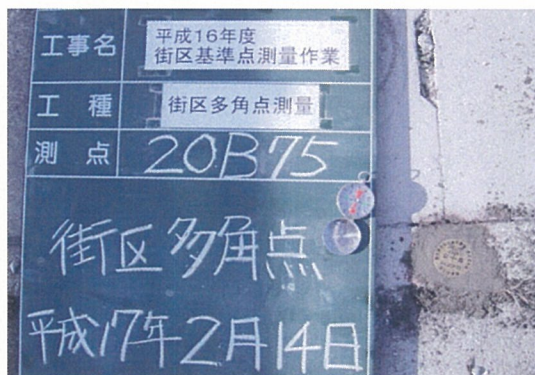 工事名
平成16年度
街区基準点測量作業
工種
街区多角点測量
測点
20B75
街区多角点
平成17年2月14日